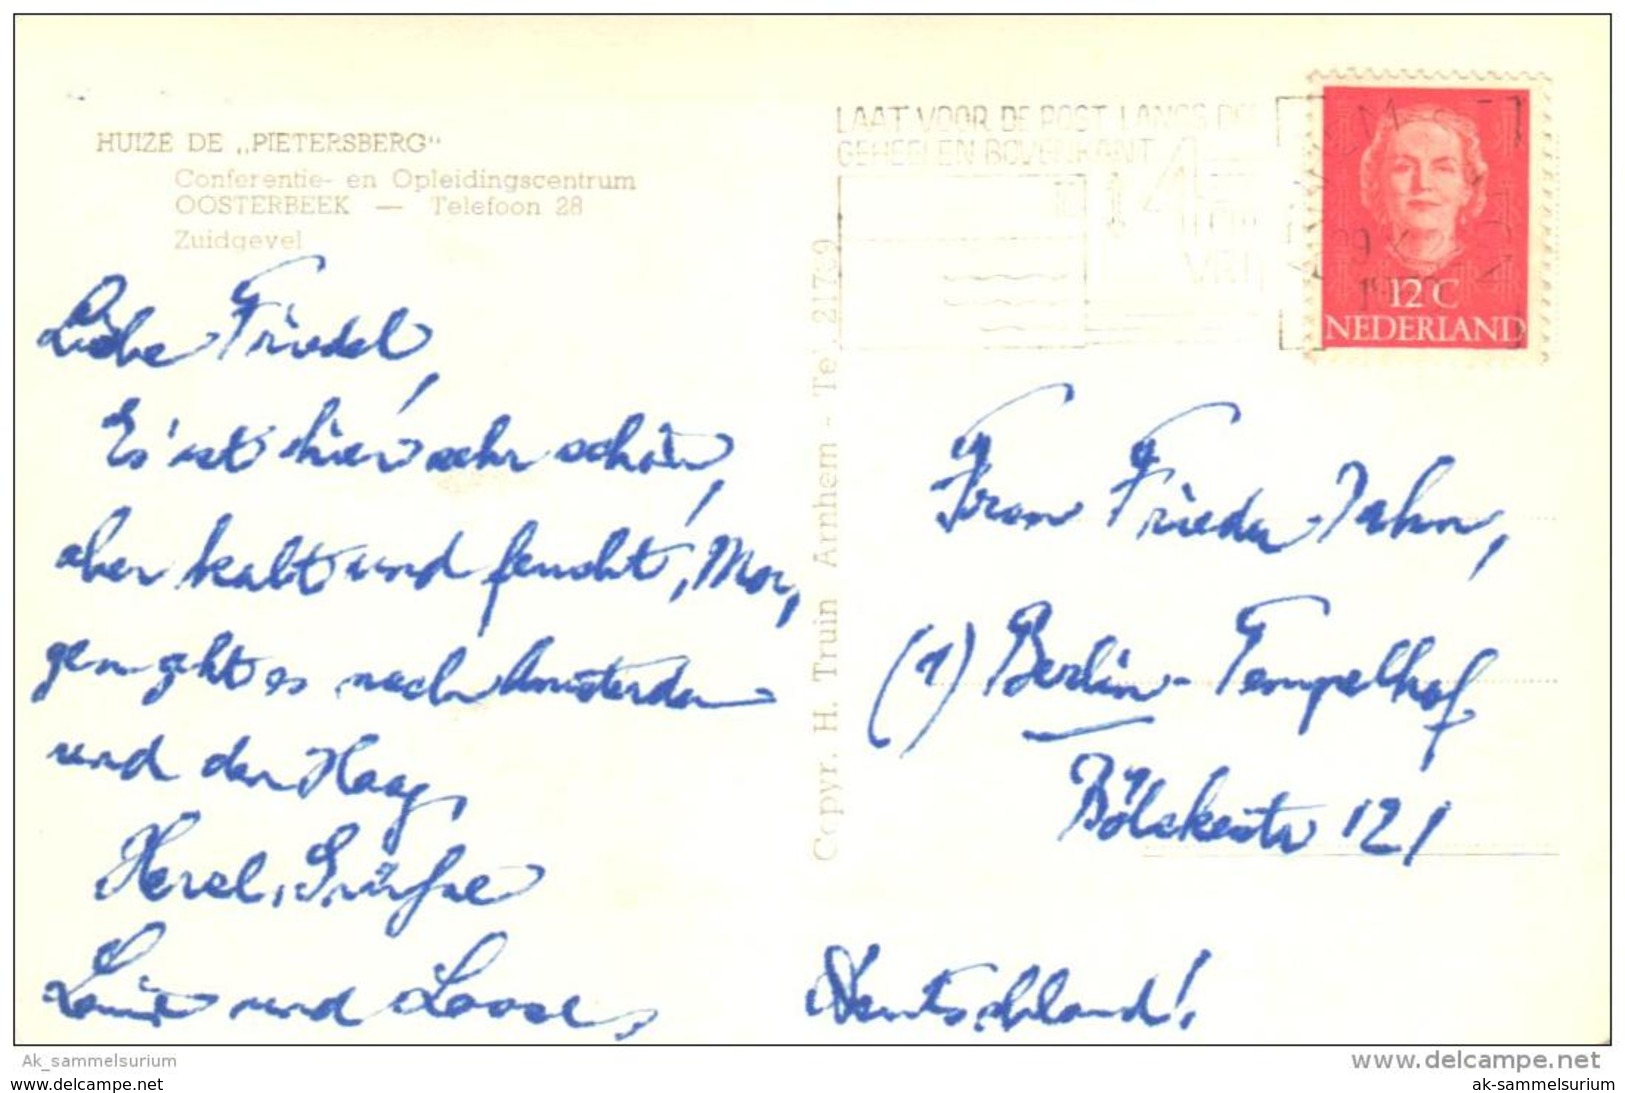 HUIZE DE „PIETERSBERG"
Conferentie- en Opleidingscentrum
OOSTERBEEK — Telefoon 28
Zuidgevel
Liebe Friedel,
Es ist hier sehr schön,
aber kalt und feucht, Mor,
gen geht es nach Amsterdam
und den Haag,
Herzl. Grüße
und
Copyr. H. Truin Arnhem - Tel. 21739
LAAT VOOR DE POST LANGS DE
GEHEELEN BOVENKANT
4
VRIJ
12 C
NEDERLAND
Frau Frieda Jahn,
(1) Berlin-Tempelhof
Bölckestr 121
Deutschland!
Ak_sammelsurium
www.delcampe.net
www.delcampe.net
ak-sammelsurium